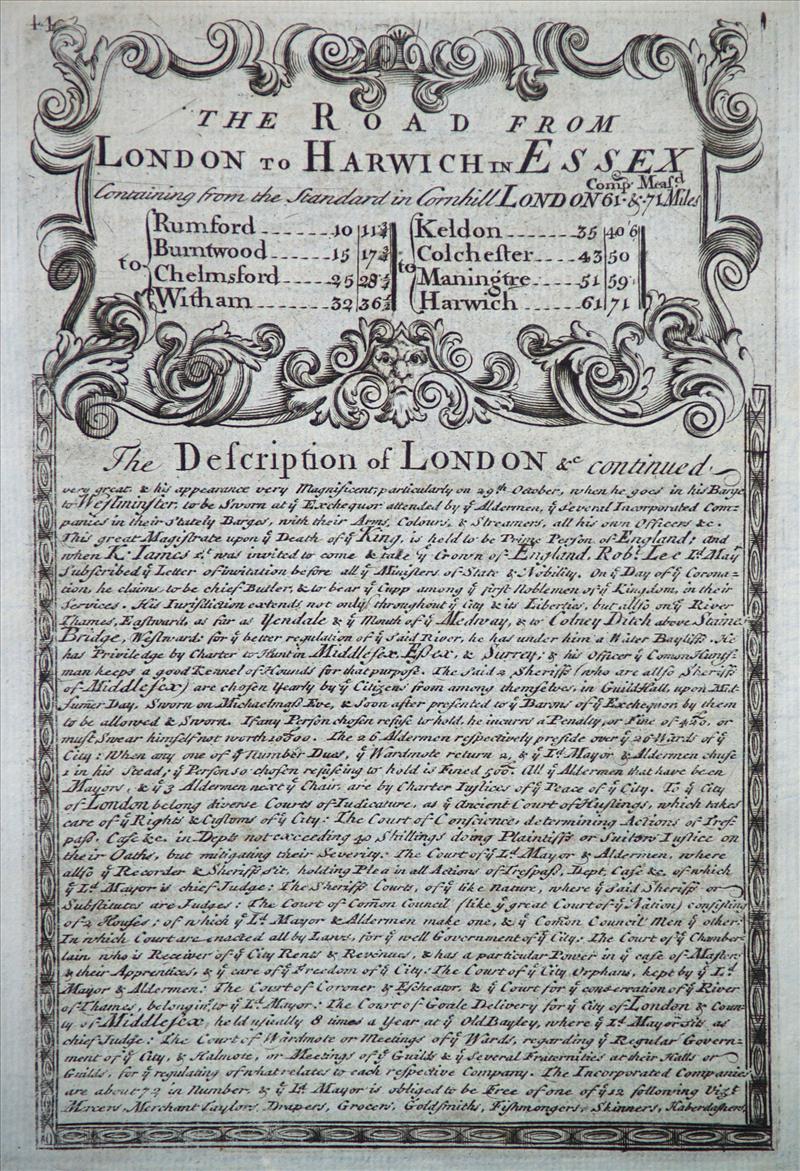 44
1
THE ROAD FROM
LONDON TO HARWICH IN ESSEX
Comp. Meas.d
Containing from the Standard in Cornhill LONDON 61 & 71 Miles
to
Rumford 10 11¾
Burntwood 15 17¾
Chelmsford 25 28½
Witham 32 36½
to
Keldon 35 40'6
Colchester 43 50
Maningtre 51 59
Harwich 61 71
The Description of LONDON &c continued
very great, & his appearance very Magnificent; particularly on 29th October, when he goes in his Barge
to Westminster, to be Sworn at ye Exchequor attended by ye Aldermen, ye several Incorporated Com-
panies in their Stately Barges, with their Arms, Colours, & Streamers, all his own Officers &c.
This great Magistrate upon ye Death of ye King, is held to be Prime Person of England; and
when K. Iames 1st was invited to come & take ye Crown of England, Robt. Lee Ld. Mayr
Subscribed ye Letter of invitation before all ye Ministers of State & Nobility. On ye Day of ye Corona-
tion, he claims to be chief Butler, & to bear ye Cupp among ye first Noblemen of ye Kingdom, in their
Services. His Iurisdiction extends not only throughout ye City & its Liberties, but allso on ye River
Thames, Eastward, as far as Yendale & ye Mouth of ye Medway, & to Colney Ditch above Staine
Bridge, Westward: for ye better regulation of ye said River, he has under him a Water Bayliff. He
has Priviledge by Charter to Hunt in Middlesex, Essex, & Surrey; & his Officer ye Comon Hunts-
man keeps a good Kennel of Hounds for that purpose. The said 2 Sheriffs (who are allso Sheriffs
of Middlesex) are chosen Yearly by ye Citizens from among themselves, in Guild Hall, upon Mid-
sumer Day, Sworn on Michaelmass Eve, & soon after presented to ye Barons of ye Exchequor by them
to be allowed & Sworn. If any Person chosen refuse to hold, he incurrs a Penalty, or Fine of 420, or
must Swear himself not worth 10000. The 26 Aldermen respectively preside over ye 26 Wards of ye
City: When any one of ye Number Dies, ye Wardmote return 2, & ye Ld. Mayor & Aldermen chuse
1 in his Stead; ye Person so chosen refuseing to hold is Fined 500. All ye Aldermen that have been
Mayors, & ye 3 Aldermen next ye Chair, are by Charter Iustices of ye Peace of ye City. To ye City
of London belong diverse Courts of Iudicature, as ye Ancient Court of Hustings, which takes
care of ye Rights & Customs of ye City: The Court of Conscience determining Actions of Tres-
pass, Case &c. in Depts not exceeding 40 Shillings doing Plaintiffs or Suitors Iustice on
their Oaths, but mitigating their Severity: The Court of ye Ld. Mayor & Aldermen, where
allso ye Recorder & Sheriffs sit, holding Plea in all Actions of Trespass, Dept, Case &c. of which
ye Ld. Mayor is chief Judge: The Sheriffs Courts, of ye like Nature, where ye said Sheriffs or
Substitutes are Judges: The Court of Comon Council (like ye great Court of ye Nation) consisting
of 2 Houses; of which ye Ld. Mayor & Aldermen make one, & ye Comon Council Men ye other:
In which Court are enacted all by Laws, for ye well Government of ye City: The Court of ye Chamber-
lain who is Receiver of ye City Rents & Revenues, & has a particular Power in ye case of Masters
& their Apprentices, & ye care of ye Freedom of ye City: The Court of ye City Orphans, kept by ye Ld.
Mayor & Aldermen: The Court of Coroner & Escheator, & ye Court for ye conservation of ye River
of Thames, belonging to ye Ld. Mayor: The Court of Goale Delivery for ye City of London & Coun-
ty of Middlesex, held usually 8 times a Year at ye Old Bayley, where ye Ld. Mayor sits as
chief Judge: The Court of Wardmote or Meetings of ye Wards, regarding ye Regular Govern-
ment of ye City, & Halmote, or Meetings of ye Guilds & ye several Fraternities at their Halls or
Guilds, for ye regulating of what relates to each respective Company. The Incorporated Companies
are about 72 in Number, & ye Ld. Mayor is obliged to be Free of one of ye 12 following Vizt
Mercers, Merchant Taylors, Drapers, Grocers, Goldsmiths, Fishmongers, Skinners, Haberdashers,